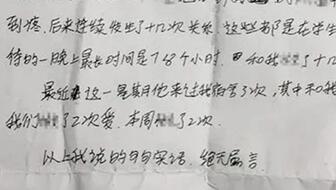 到疼,后来连续发生了十几次关系,这些都是在学生
待的一晚上最长时间是7 8个小时,和我 了十几
最近这一星期他来过我宿舍了3次,其中和我
我们 了2次爱,本周 了2次.
以上我说的句句实话,绝无虚言.